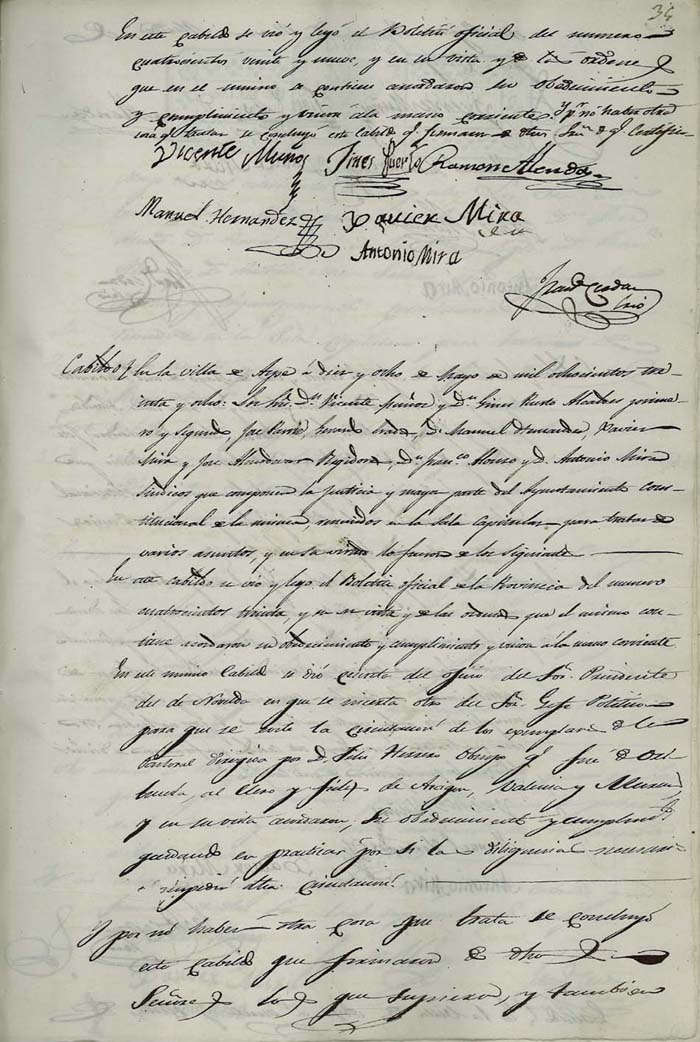 34
En este Cabildo se vió y leyó el Boletin oficial del numero
cuatrocientos veinte y nueve, y en su vista y de las ordenes
que en el mismo se contiene acordaron su obedecimiento
y cumplimiento y union á la mano corriente. Y pr. nó haber otra
cosa qe. tratar se concluyó este Cabildo qe. firmaron dhos. Sres. de qe. Certifico
Vicente Muñoz Gines Puerto Ramon Alenda
Manuel Hernandez Xavier Mira
Antonio Mira
Cabildo En la villa de Aspe á diez y ocho de Mayo de mil ochocientos tre
inta y ocho: Los Sres. Dn. Vicente Muñoz y Dn. Gines Puerto Alcaldes prime
ro y segundo, José D. Manuel Xavier
Mira y José Regidores Dn. Franco. Alonso y D. Antonio Mira
Sindicos que componen la Justicia y mayor parte del Ayuntamiento Cons
titucional de la misma, reunidos en la Sala Capitular para tratar de
varios asuntos, y en su lo fueron de los siguiente
En este Cabildo se vio y leyo el Boletin oficial de la Provincia del numero
cuatrocientos treinta, y en su vista y de las ordenes que el mismo con
tiene acordaron su obedecimiento y cumplimiento y union á la mano corriente
En este mismo Cabildo se dió cuenta del oficio del Sor. Presidente
del de Novelda en que se inserta otro del Sor. Gefe Politico
para que se evite la circulacion de los exemplares de la
Pastoral dirigida por D. Felix Herrero Obispo qe. fué de Ori
huela, al Clero y fieles de Aragon, Valencia y Murcia,
y en su vista acordaron, su obedecimiento y cumplimto.
quedando en practicar por si las diligencias
dha. circulacion
Y por nó haber otra cosa que tratar se concluyó
este Cabildo que firmaron dhos
Señores los que supieron, y tambien